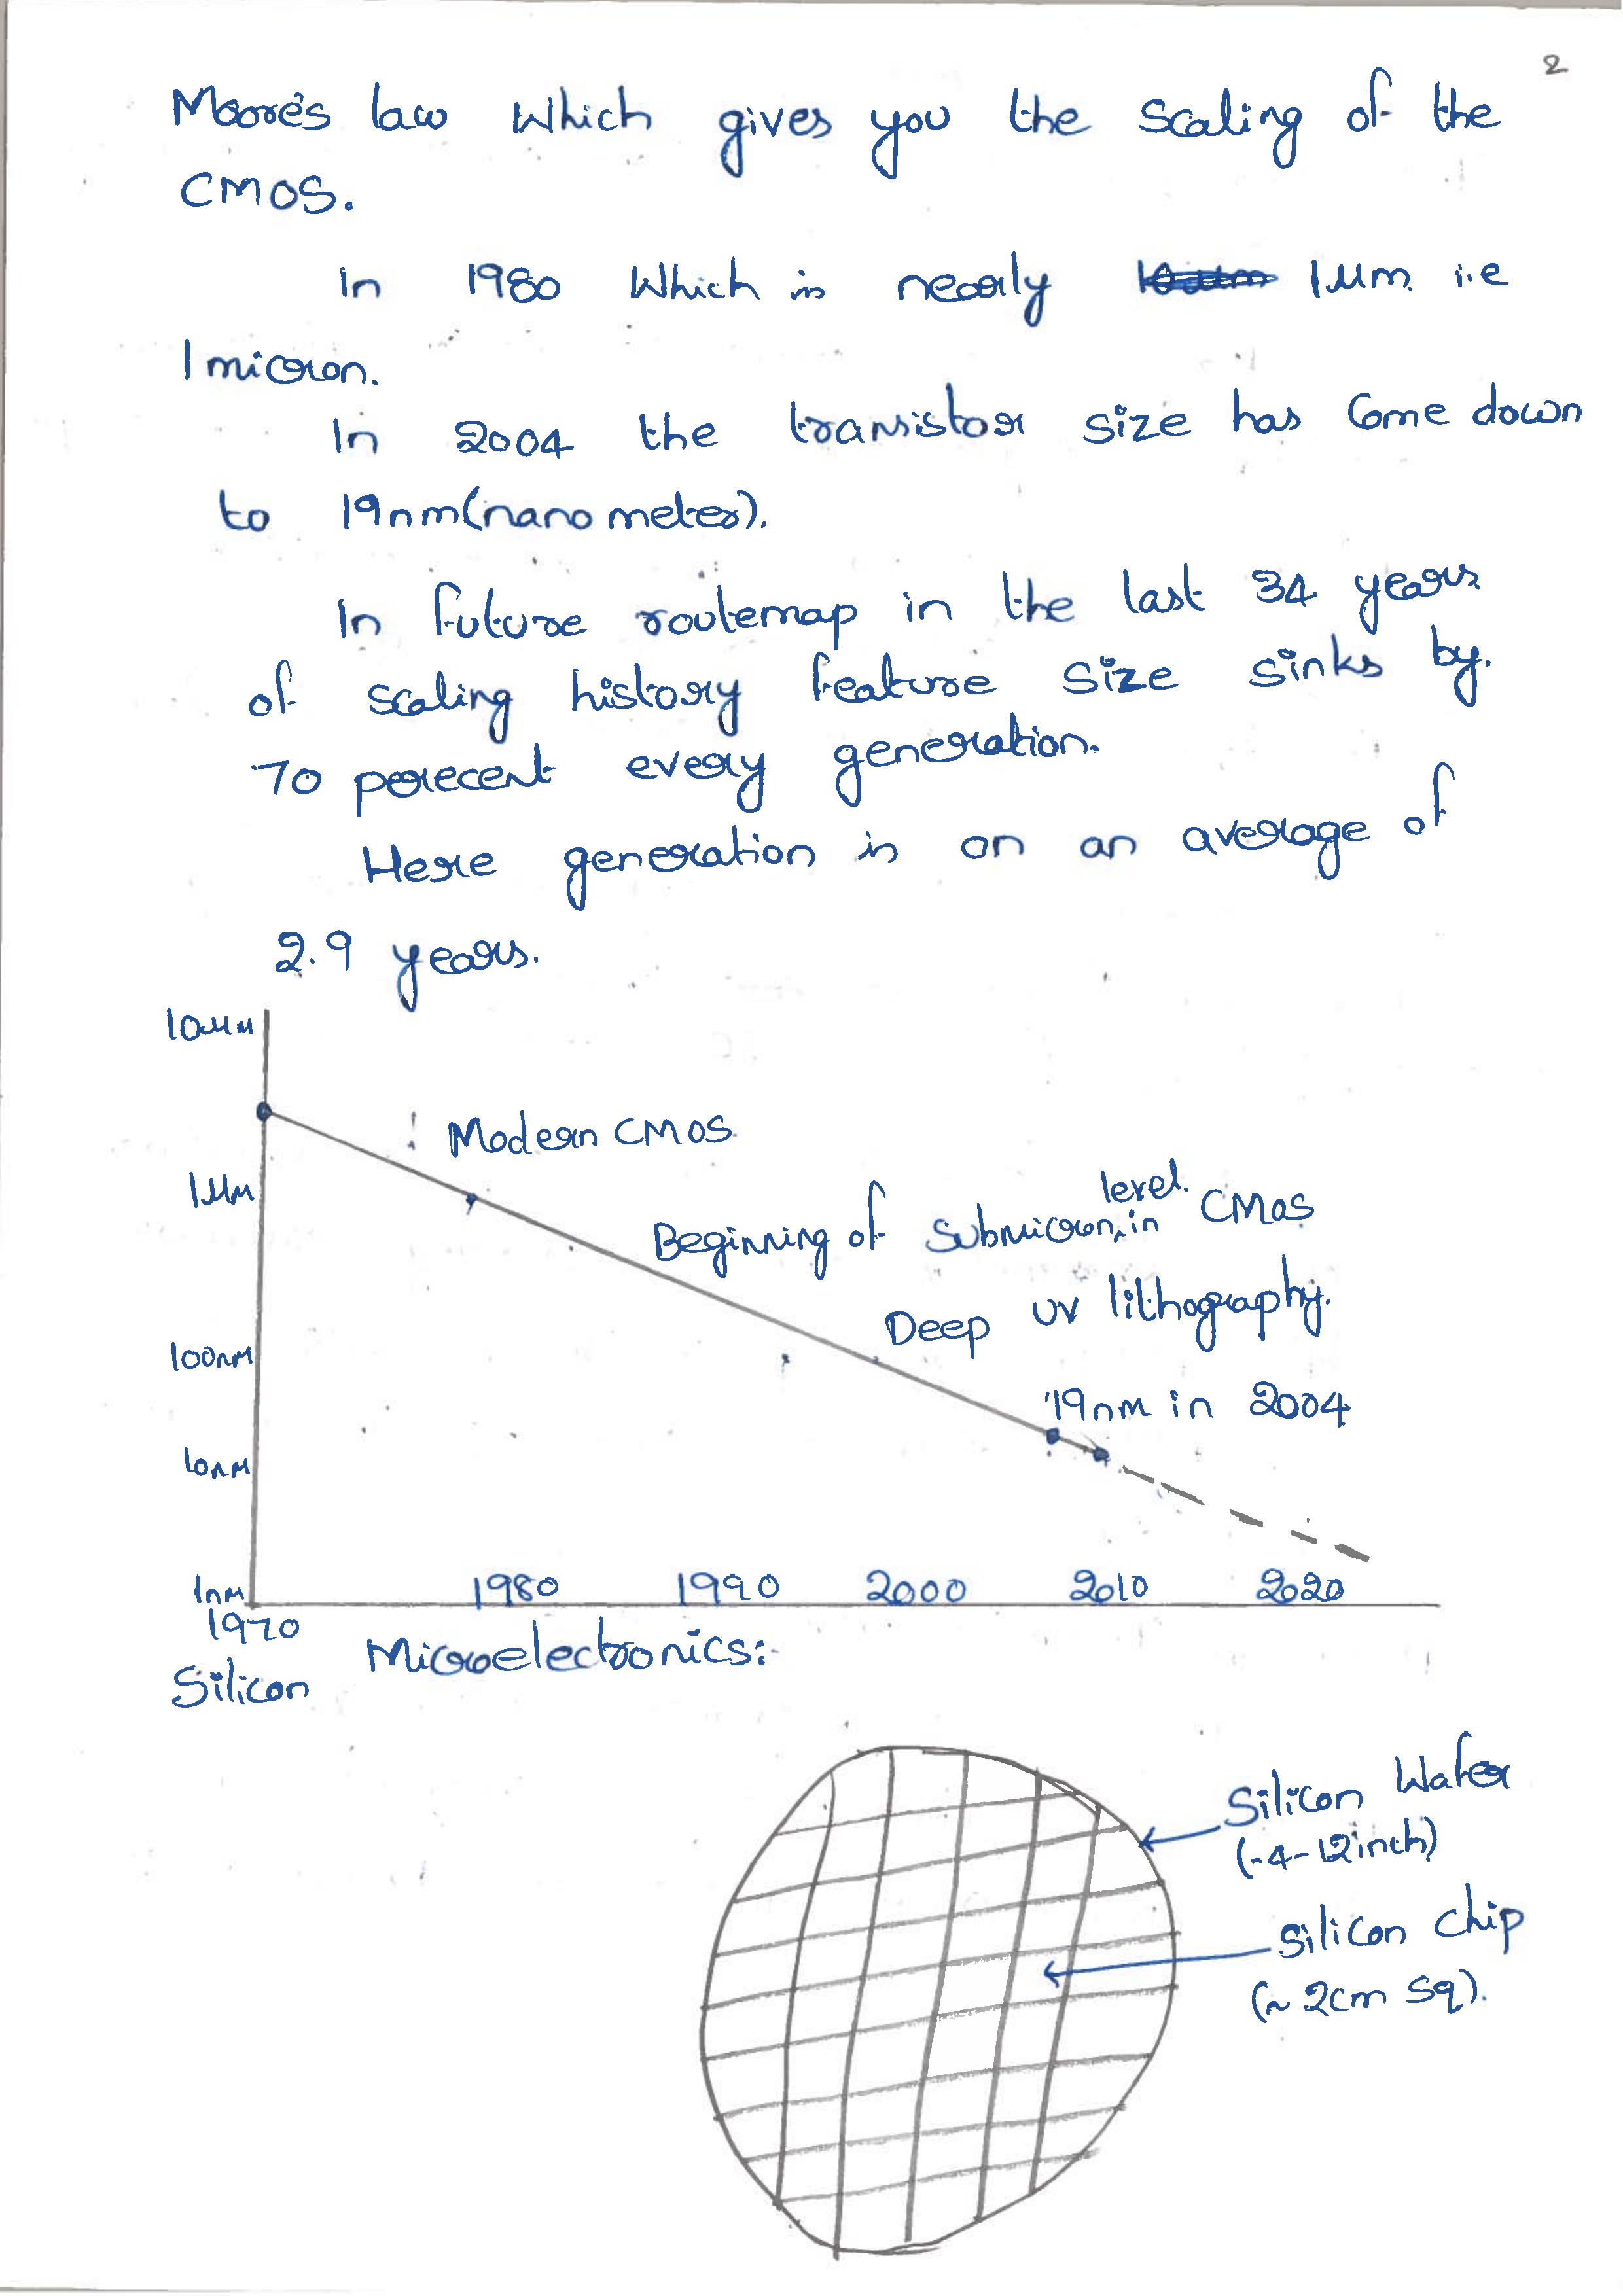 2
Moore's law which gives you the scaling of the
CMOS.
In 1980 which is nearly 1μm i.e
1 micron.
In 2004 the transistor size has come down
to 19nm(nano meter).
In future routemap in the last 34 years
of scaling history feature size sinks by.
70 perecent every generation.
Here generation is on an average of
2.9 years.
10μm
Modern CMOS
1μm
level.
Beginning of submicron, in CMOS
Deep UV lithography.
100nm
19nm in 2004
10nm
1nm 1980 1990 2000 2010 2020
1970
Silicon Microelectronics:-
Silicon Wafer
(-4-12inch)
Silicon chip
(~ 2cm sq).